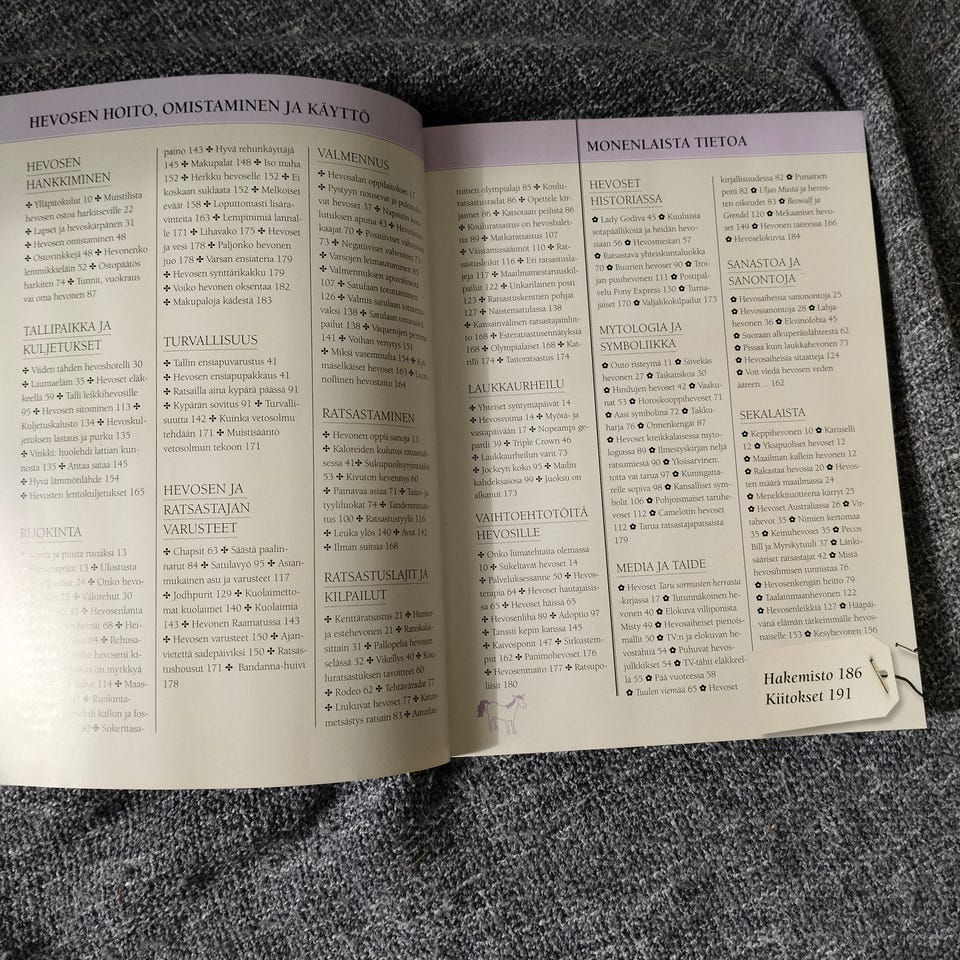 HEVOSEN HOITO, OMISTAMINEN JA KÄYTTÖ
HEVOSEN
HANKKIMINEN
✤ Ylläpitokulut 10 ✤ Muistilista
hevosen ostoa harkitseville 22
✤ Lapset ja hevoskärpänen 31
✤ Hevosen omistaminen 48
✤ Ostovinkkejä 48 ✤ Hevonenko
lemmikkieläin 52 ✤ Ostopäätös
harkiten 74 ✤ Tunnit, vuokraus
vai oma hevonen 87
TALLIPAIKKA JA
KULJETUKSET
✤ Viiden tähden hevoshotelli 30
✤ Laumaeläin 35 ✤ Hevosten eläk-
keellä 59 ✤ Talli leikkihevosille
95 ✤ Hevosen sitominen 113 ✤
Kuljetuskalusto 134 ✤ Hevoskul-
jetuksen lastaus ja purku 135
✤ Vinkki: huolehdi lattian kun-
nosta 135 ✤ Antaa sataa 145
✤ Hyvä lämmönlähde 154
✤ Hevosten lentokuljetukset 165
RUOKINTA
ja puuta ruoaksi 13
13 ✤ Ulostusta
24 ✤ Onko hevo-
27 ✤ Väkirehut 30
✤ Hevosenlanta
heinät 68 ✤ Hei-
84 ✤ Rehusa-
hevoseni ki-
on myrkkyä
114 ✤ Maas-
✤ Ruokinta-
kalkin ja fos-
✤ Sokeritasa-
paino 143 ✤ Hyvä rehunkäyttäjä
145 ✤ Makupalat 148 ✤ Iso maha
152 ✤ Herkku hevoselle 152 ✤ Ei
koskaan suklaata 152 ✤ Melkoiset
eväät 158 ✤ Loputtomasti lisära-
vinteita 163 ✤ Lempinimiä lannal-
le 171 ✤ Lihavako 175 ✤ Hevoset
ja vesi 178 ✤ Paljonko hevonen
juo 178 ✤ Varsan ensiateria 179
✤ Hevosen synttärikakku 179
✤ Voiko hevonen oksentaa 182
✤ Makupaloja kädestä 183
TURVALLISUUS
✤ Tallin ensiapuvarustus 41
✤ Hevosen ensiapupakkaus 41
✤ Ratsailla aina kypärä päässä 91
✤ Kypärän sovitus 91 ✤ Turvalli-
suutta 142 ✤ Kuinka vetosolmu
tehdään 171 ✤ Muistisääntö
vetosolmun tekoon 171
HEVOSEN JA
RATSASTAJAN
VARUSTEET
✤ Chapsit 63 ✤ Säästä paalin-
narut 84 ✤ Satulavyö 95 ✤ Asian-
mukainen asu ja varusteet 117
✤ Jodhpurit 129 ✤ Kuolaimetto-
mat kuolaimet 140 ✤ Kuolaimia
143 ✤ Hevonen Raamatussa 143
✤ Hevosen varusteet 150 ✤ Ajan-
vietettä sadepäiviksi 150 ✤ Ratsas-
tushousut 171 ✤ Bandanna-huivi
178
VALMENNUS
✤ Hevosalan oppilaitokset 17
✤ Pystyyn nousevat ja pukitte-
vat hevoset 37 ✤ Naposulin kou-
lutuksen apuna 43 ✤ Hevoskuis-
kaajat 70 ✤ Positiiviset vahvisteet
73 ✤ Negatiiviset vahvisteet 73
✤ Varsojen leimautuminen 85
✤ Valmennuksen apuvälineitä
107 ✤ Satulaan totuttaminen
126 ✤ Valmis satulaan totutta-
vaksi 138 ✤ Satulaan totuttajan
pulmat 138 ✤ Vaquerojen perinne
141 ✤ Voihan vernyys 151
✤ Miksi vasemmalta 154 ✤ Kyl-
mäselkäiset hevoset 163 ✤ Luon-
nollinen hevostaito 164
RATSASTAMINEN
✤ Hevonen oppii sanoja 13
✤ Kaloreiden kulutus ratsastuk-
sessa 41 ✤ Sukupuolisyrjintää
53 ✤ Kivuton kevennys 60
✤ Painavaa asiaa 71 ✤ Taito- ja
tyyliluokat 74 ✤ Tandemratsas-
tus 100 ✤ Ratsastustyylit 116
✤ Leuka ylös 140 ✤ Avut 142
✤ Ilman suitsia 168
RATSASTUSLAJIT JA
KILPAILUT
✤ Kenttäratsastus 21 ✤ Hunter-
ja estehevonen 21 ✤ Ranskalai-
sittain 31 ✤ Pallopeliä hevosen
selässä 32 ✤ Vikellys 40 ✤ Kou-
luratsastuksen tavoitteet 60
✤ Rodeo 62 ✤ Tehtäväradat 77
✤ Liukuvat hevoset 77 ✤ Ketun-
metsästys ratsain 83 ✤ Ainutlaa-
MONENLAISTA TIETOA
tuinen olympialaji 85 ✤ Koulu-
ratsastusradat 86 ✤ Opettele kir-
jaimet 86 ✤ Katsotaan peilistä 86
✤ Kouluratsastus on hevosbalet-
tia 89 ✤ Matkaratsastus 107
✤ Väistämissäännöt 110 ✤ Rat-
sastusleikit 116 ✤ Eri ratsastusla-
jeja 117 ✤ Maailmamestaruuskil-
pailut 122 ✤ Unkarilainen posti
123 ✤ Ratsastuskenttien pohjat
127 ✤ Naistensatulassa 138
✤ Kansainvälinen ratsastajainliit-
to 168 ✤ Esteratsastusennätyksiä
168 ✤ Olympialaiset 168 ✤ Kat-
rilli 174 ✤ Taitoratsastus 174
LAUKKAURHEILU
✤ Yhteiset syntymäpäivät 14
✤ Hevosvoima 14 ✤ Myötä- ja
vastapäivään 17 ✤ Nopeampi ge-
pardi 39 ✤ Triple Crown 46
✤ Laukkaurheilun värit 73
✤ Jockeyn koko 95 ✤ Mailin
kahdeksasosa 99 ✤ Juoksu on
alkanut 173
VAIHTOEHTOTÖITÄ
HEVOSILLE
✤ Onko liimatehtaita olemassa
10 ✤ Sukeltavat hevoset 14
✤ Palveluksessanne 50 ✤ Hevos-
terapia 64 ✤ Hevoset hautajais-
sa 65 ✤ Hevoset häissä 65
✤ Hevosenliha 89 ✤ Adoptio 97
✤ Tanssii kepin kanssa 145
✤ Kaivosponit 147 ✤ Sirkustem-
put 162 ✤ Panimohevoset 176
✤ Hevosenmaito 177 ✤ Ratsupo-
liisit 180
HEVOSET
HISTORIASSA
✿ Lady Godiva 45 ✿ Kuuluisia
sotapäälliköitä ja heidän hevo-
siaan 56 ✿ Hevosmestari 57
✿ Ratsastava yhteiskuntaluokka
70 ✿ Buurien hevoset 90 ✿ Troi-
jan puuhevonen 111 ✿ Postipal-
velu Pony Express 130 ✿ Turna-
jaiset 170 ✿ Valjakkokilpailut 173
MYTOLOGIA JA
SYMBOLIIKKA
✿ Outo risteymä 11 ✿ Siivekäs
hevonen 27 ✿ Taikauskoa 30
✿ Hindujen hevoset 42 ✿ Vaaku-
nat 53 ✿ Horoskooppihevoset 71
✿ Aasi symbolina 72 ✿ Takku-
harja 76 ✿ Onnenkengät 87
✿ Hevoset kreikkalaisessa myto-
logiassa 89 ✿ Ilmestyskirjan neljä
ratsumiestä 90 ✿ Yksisarvinen:
totta vai tarua 97 ✿ Kuningatta-
relle sopiva 98 ✿ Kansalliset sym-
bolit 106 ✿ Pohjoismaiset taruhe-
voset 112 ✿ Camelotin hevoset
112 ✿ Tarua ratsastajapatsaista
179
MEDIA JA TAIDE
✿ Hevoset Taru sormusten herrasta
-kirjassa 17 ✿ Tutunnäköinen he-
vonen 40 ✿ Elokuva villiponista
Misty 49 ✿ Hevosaiheiset pienois-
mallit 50 ✿ TV:n ja elokuvan he-
vostähtiä 54 ✿ Puhuvat hevos-
julkkikset 54 ✿ TV-tähti eläkkeel-
lä 55 ✿ Pää vuoteessa 58
✿ Tuulen viemää 65 ✿ Hevoset
kirjallisuudessa 82 ✿ Punainen
poni 82 ✿ Uljas Musta ja hevos-
ten oikeudet 83 ✿ Beowulf ja
Grendel 120 ✿ Mekaaniset hevo-
set 149 ✿ Hevonen taiteessa 166
✿ Hevoselokuvia 184
SANASTOA JA
SANONTOJA
✿ Hevosaiheisia sanonontoja 25
✿ Hevossanontoja 28 ✿ Lahja-
hevonen 36 ✿ Ekvinofobia 45
✿ Suoraan alkuperäislähteestä 62
✿ Pissaa kuin laukkahevonen 73
✿ Hevosaiheisia sitaatteja 124
✿ Voit viedä hevosen veden
ääreen… 162
SEKALAISTA
✿ Keppihevonen 10 ✿ Karuselli
12 ✿ Yksipuoliset hevoset 12
✿ Maailman kallein hevonen 12
✿ Rakastaa hevosia 20 ✿ Hevos-
ten määrä maailmassa 24
✿ Menekkituotteena kärryt 25
✿ Hevoset Australiassa 26 ✿ Vir-
tahevot 35 ✿ Nimien kertomaa
35 ✿ Keinuhevoset 35 ✿ Pecos
Bill ja Myrskytuuli 37 ✿ Länki-
sääriset ratsastajat 42 ✿ Mistä
hevosihmisen tunnistaa 76
✿ Hevosenkengän heitto 79
✿ Taalainmaanhevonen 122
✿ Hevosenleikkiä 127 ✿ Hääpäi-
vänä elämän tärkeimmälle hevos-
naiselle 153 ✿ Kesyhevonen 156
Hakemisto 186
Kiitokset 191